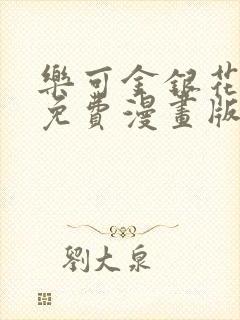 樂可金銀花
免費漫畫版
劉大泉